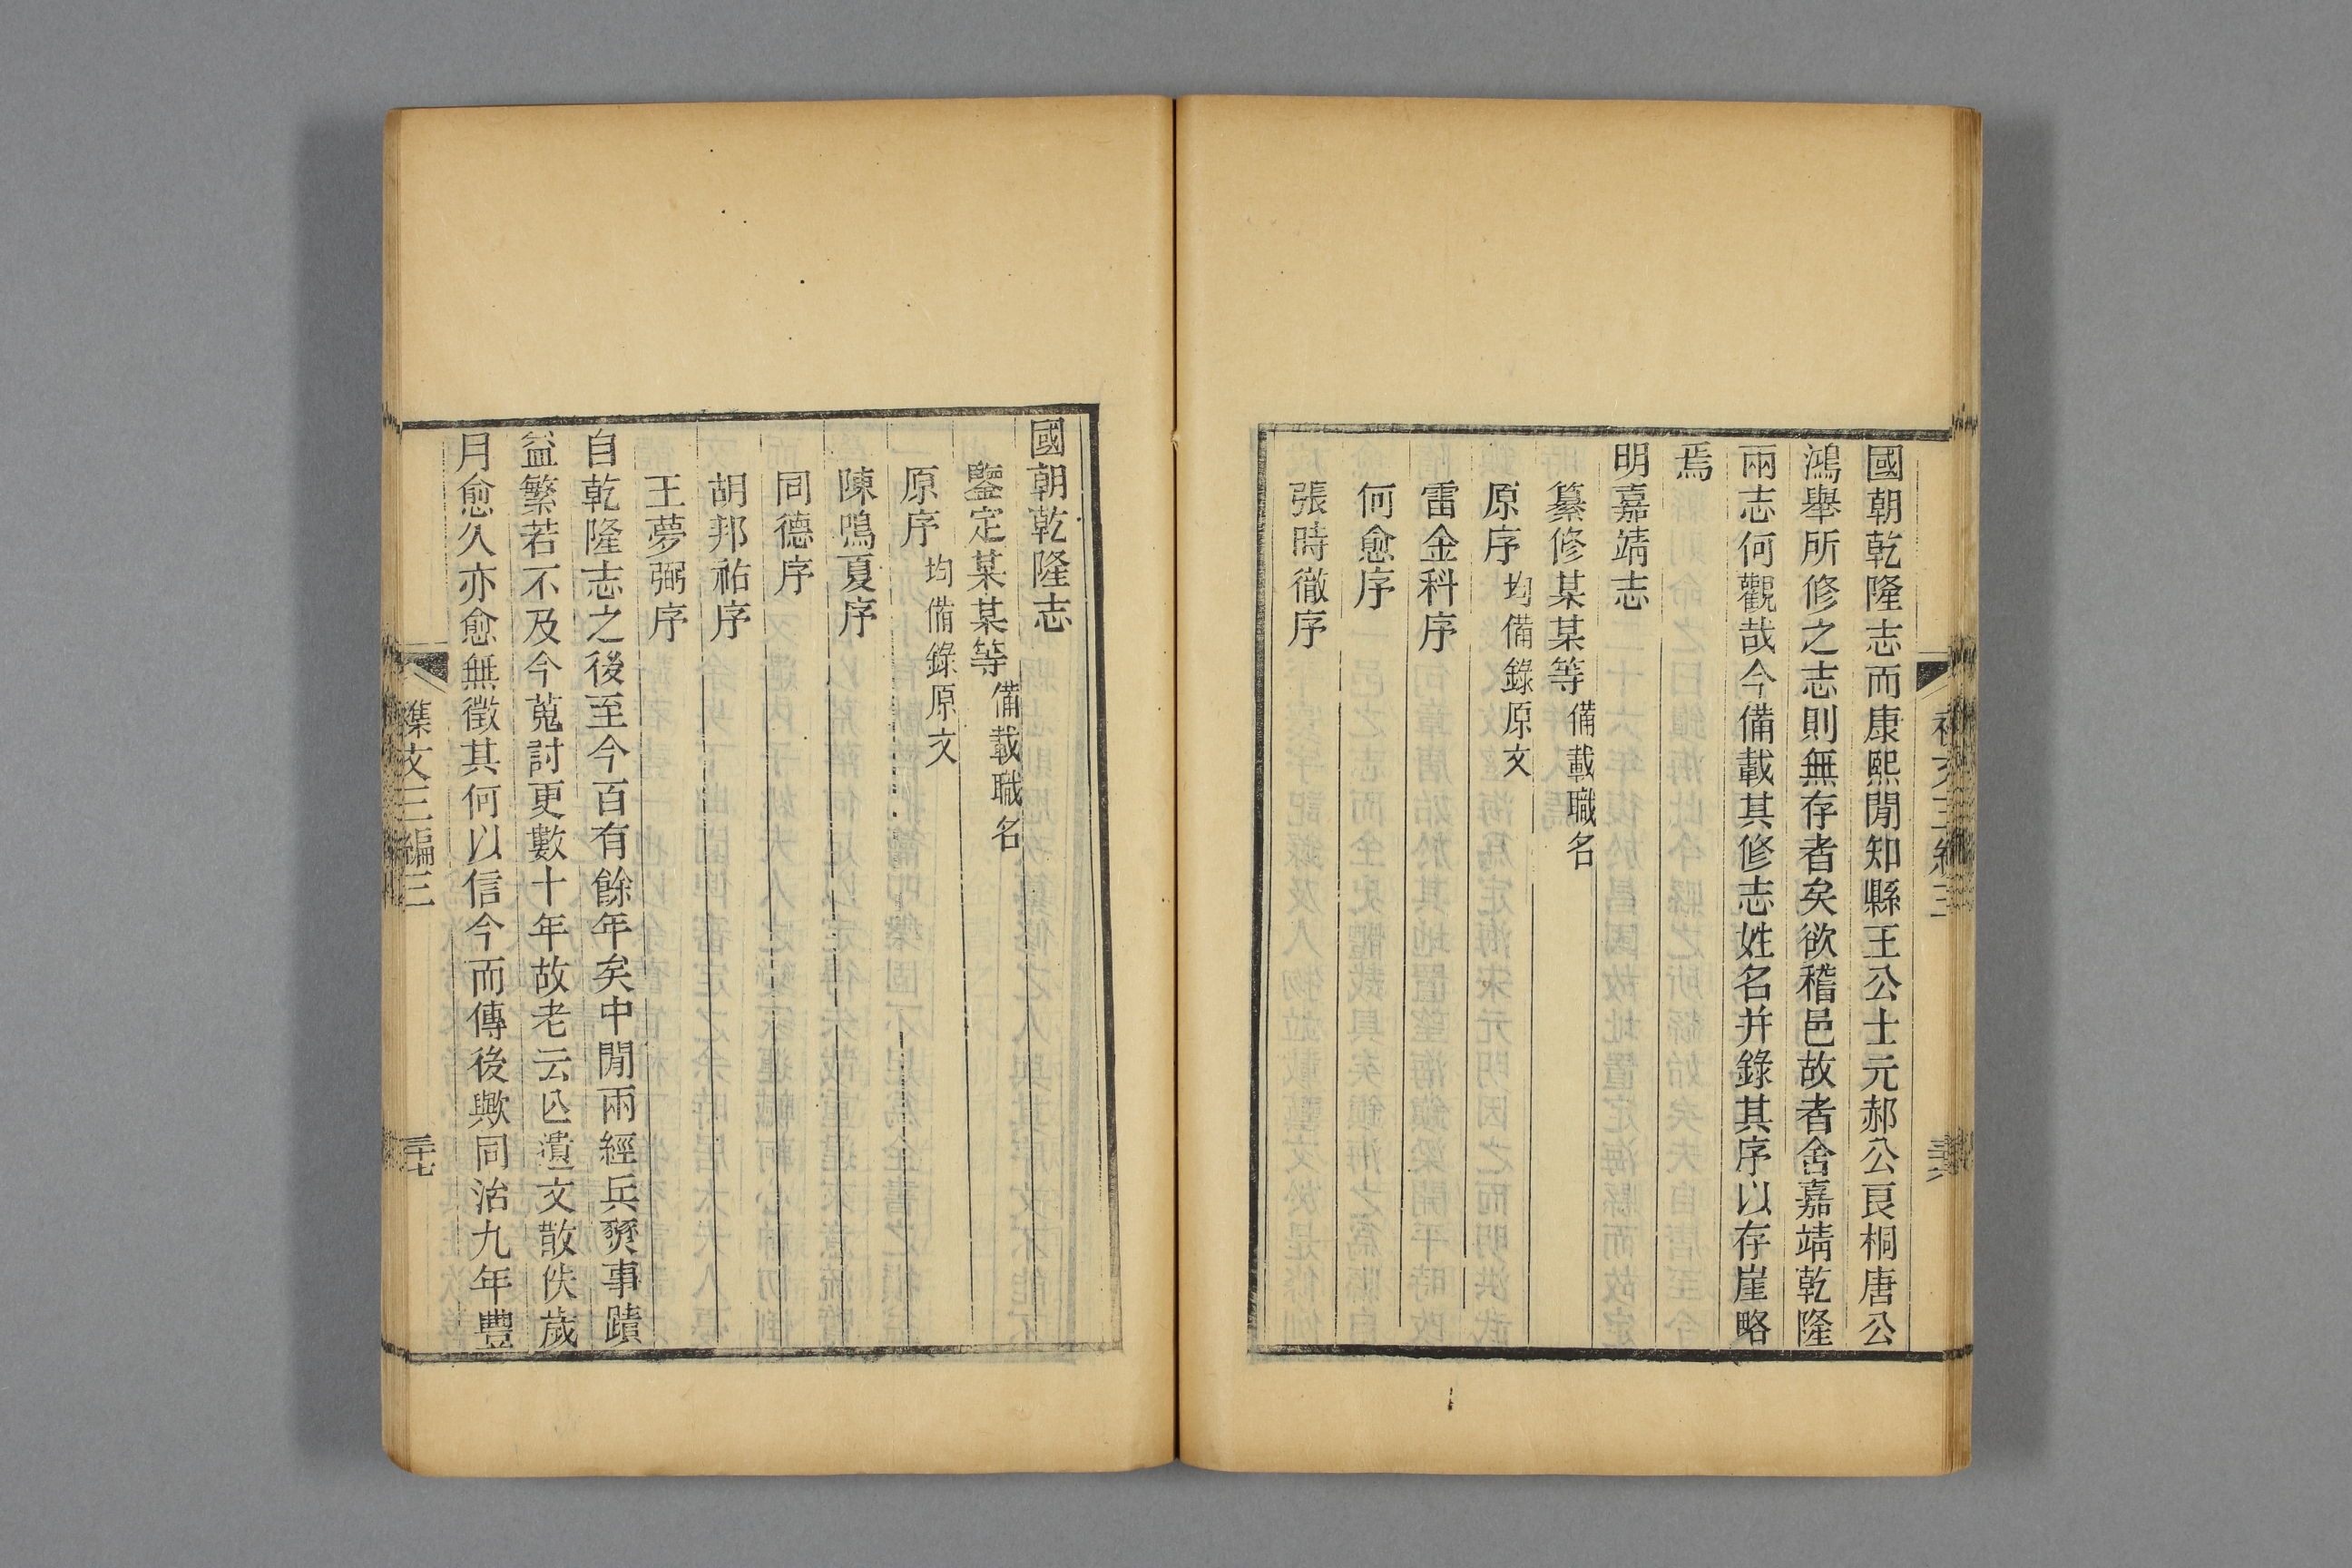 國朝乾隆志而康熙閒知縣王公士元郝公良桐唐公
鴻舉所修之志則無存者矣欲稽邑故者舍嘉靖乾隆
兩志何觀哉今備載其修志姓名并錄其序以存崖略
焉
明嘉靖志
纂修某某等備載職名
原序均備錄原文
雷金科序
何愈序
張時徹序
國朝乾隆志
鑒定某某等備載職名
原序均備錄原文
陳鳴夏序
同德序
胡邦祐序
王夢弼序
自乾隆志之後至今百有餘年矣中閒兩經兵燹事蹟
益繁若不及今蒐討更數十年故老云亾遺文散佚歲
月愈久亦愈無徵其何以信今而傳後歟同治九年豐
襍文三編三
三十七